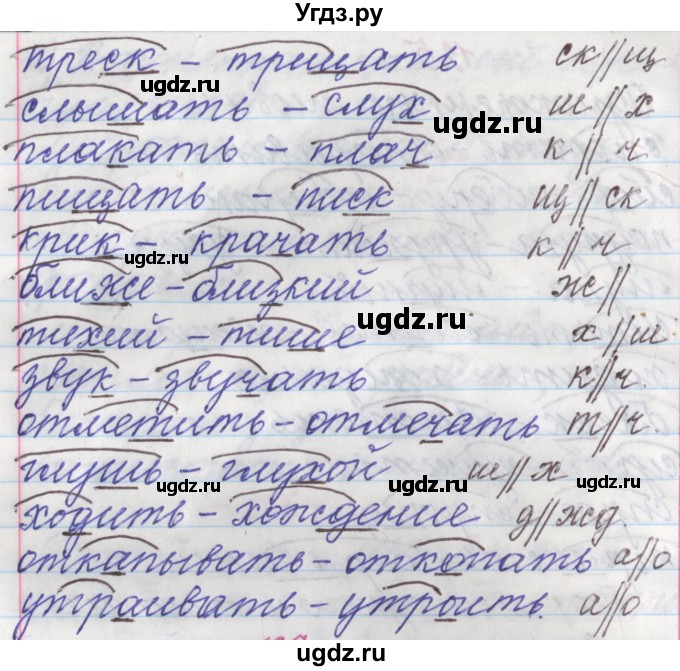 Угдз.ру
треск – трещать ск//щ
слышать – слух ш//х
плакать – плач к//ч
пищать – писк щ//ск
крик – крачать к//ч
ближе – близкий ж//
тихий – тише х//ш
звук – звучать к//ч.
отметить – отмечать т//ч.
глушь – глухой ш//х
ходить – хождение д//жд.
откапывать – откопать а//о
утраивать – утроить. а//о
ugdz.ru
ugdz.ru
ugdz.ru
ugdz.ru
ugdz.ru
ugdz.ru
ugdz.ru
ugdz.ru
ugdz.ru
ugdz.ru
ugdz.ru
ugdz.ru